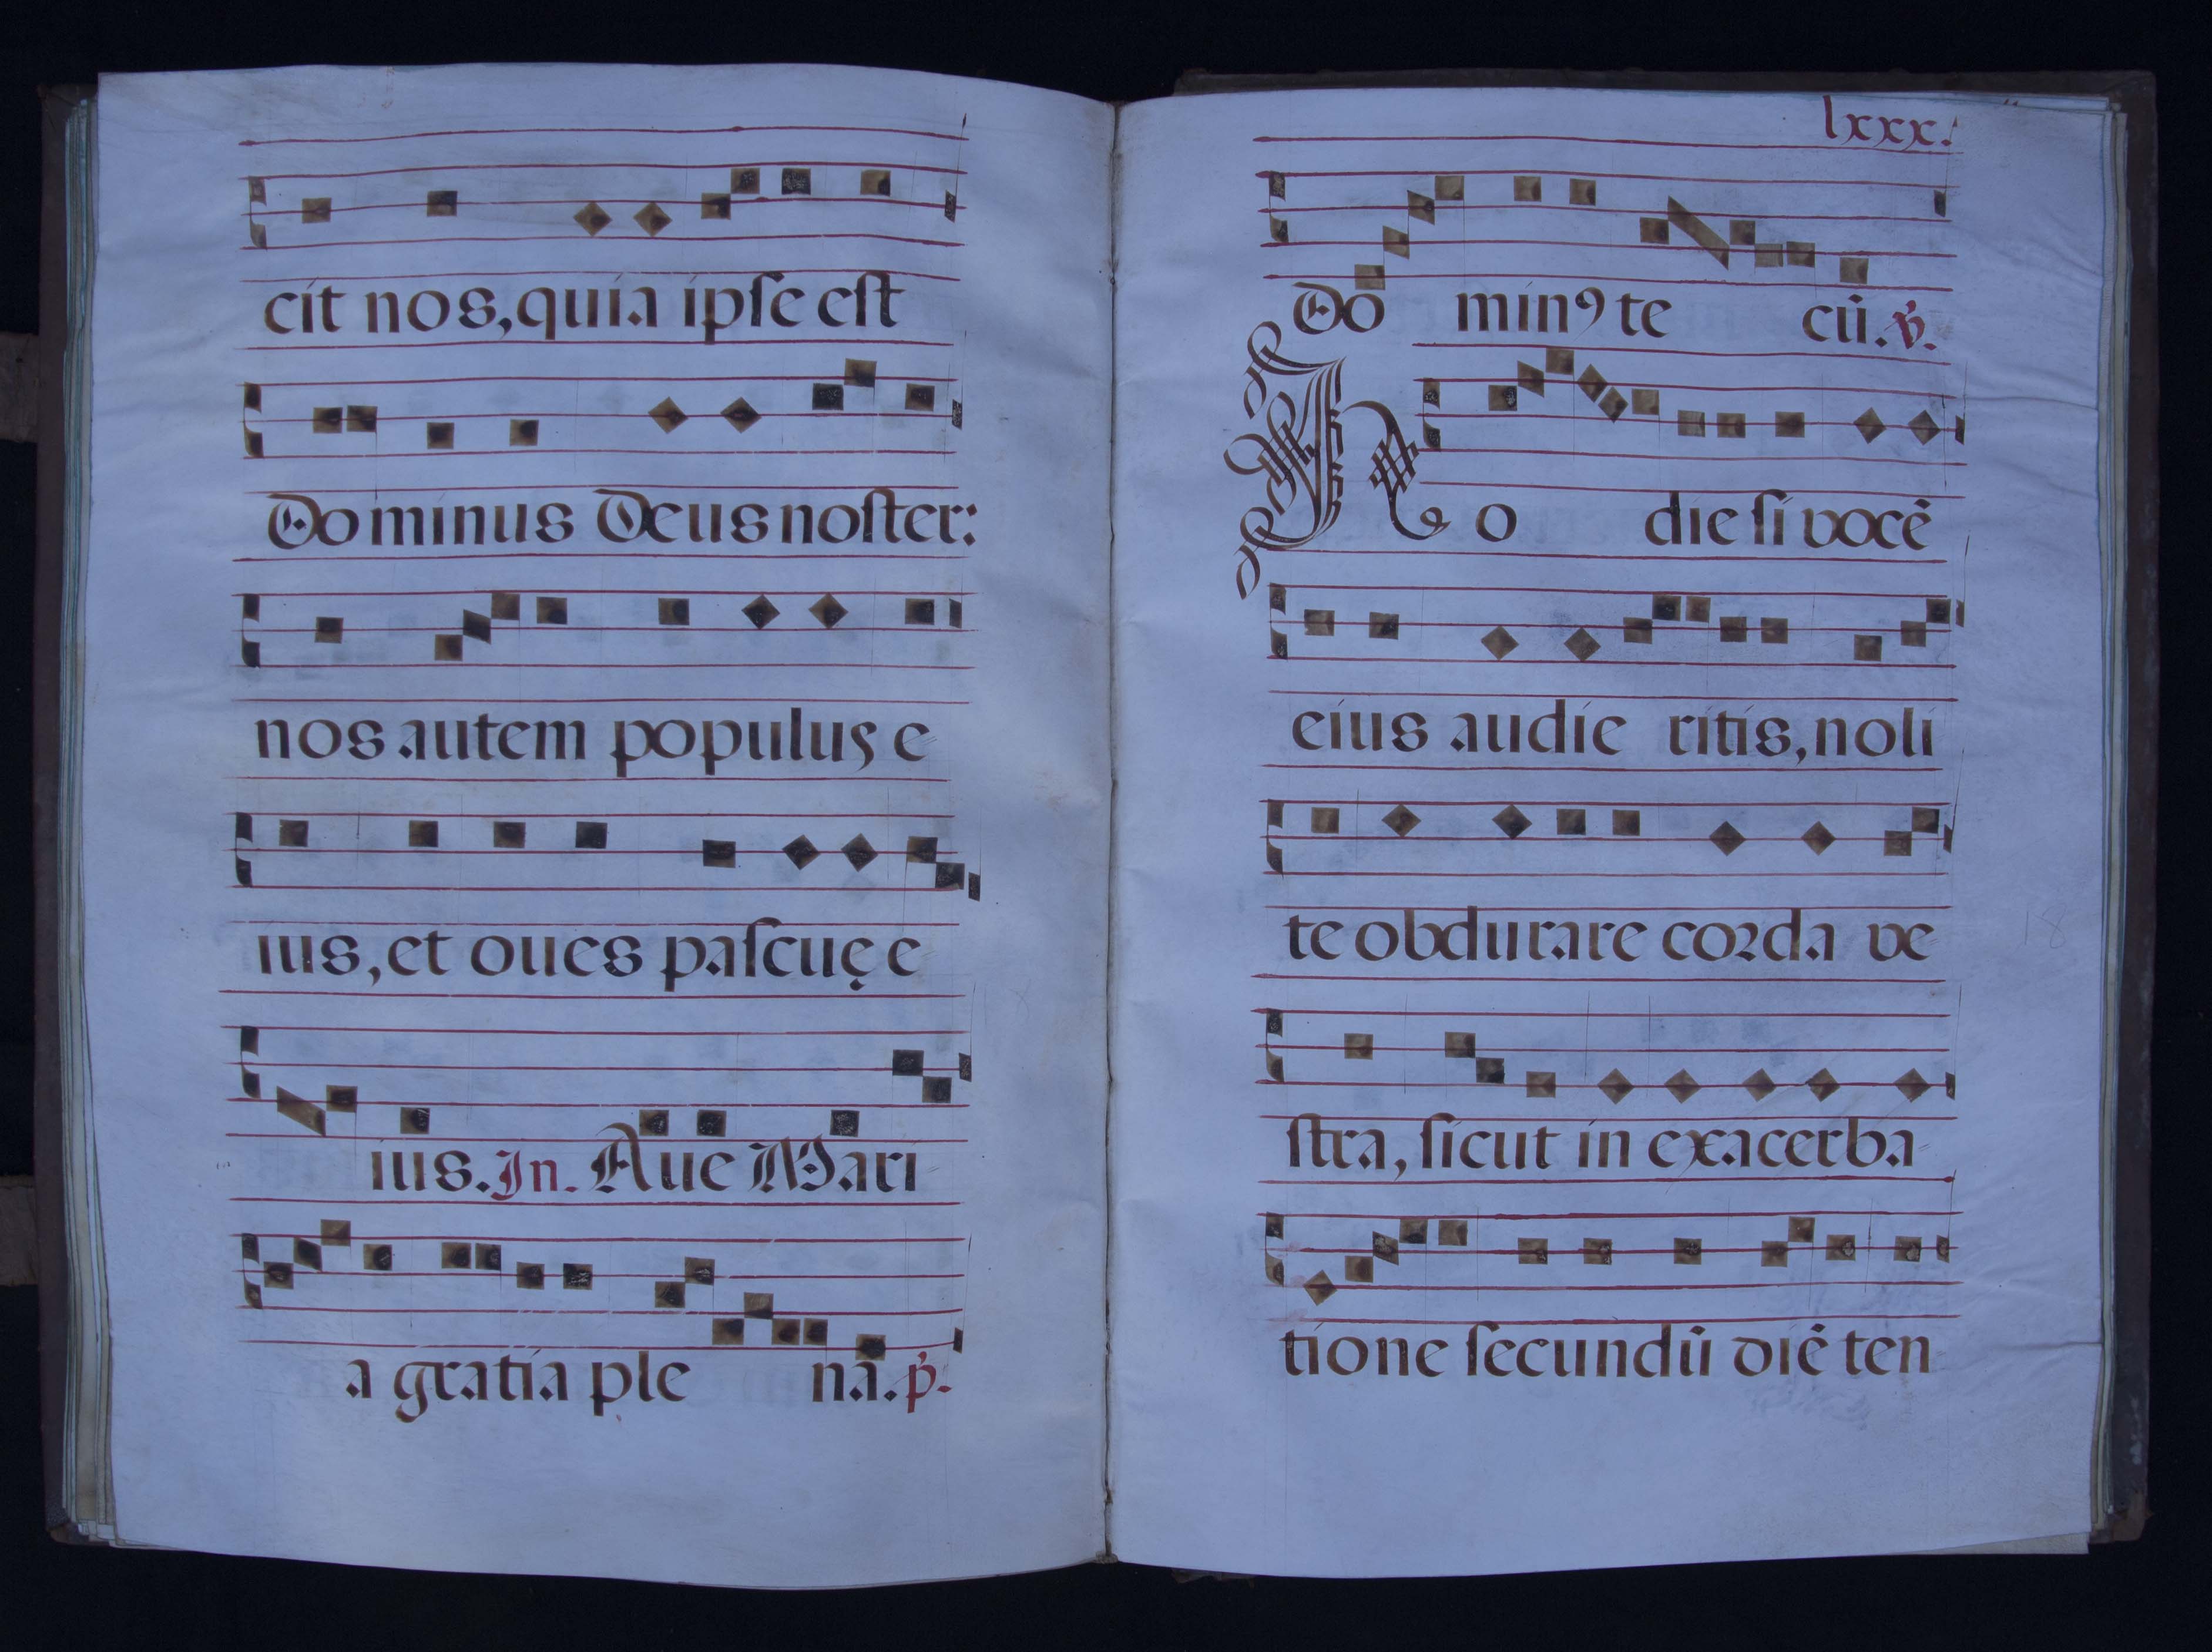 cit nos, quia ipſe eſt
Dominus Deus noſter:
nos autem populus e
ius, et oues paſcuę e
ius. In. Aue Mari
a gratia ple na. p̃.
lxxx.
Do minꝰ te cū. ṽ.
Ho die ſi vocē
eius audie ritis, noli
te obdurare coꝛda ve
ſtra, ſicut in exacerba
tione ſecundū diē ten
18